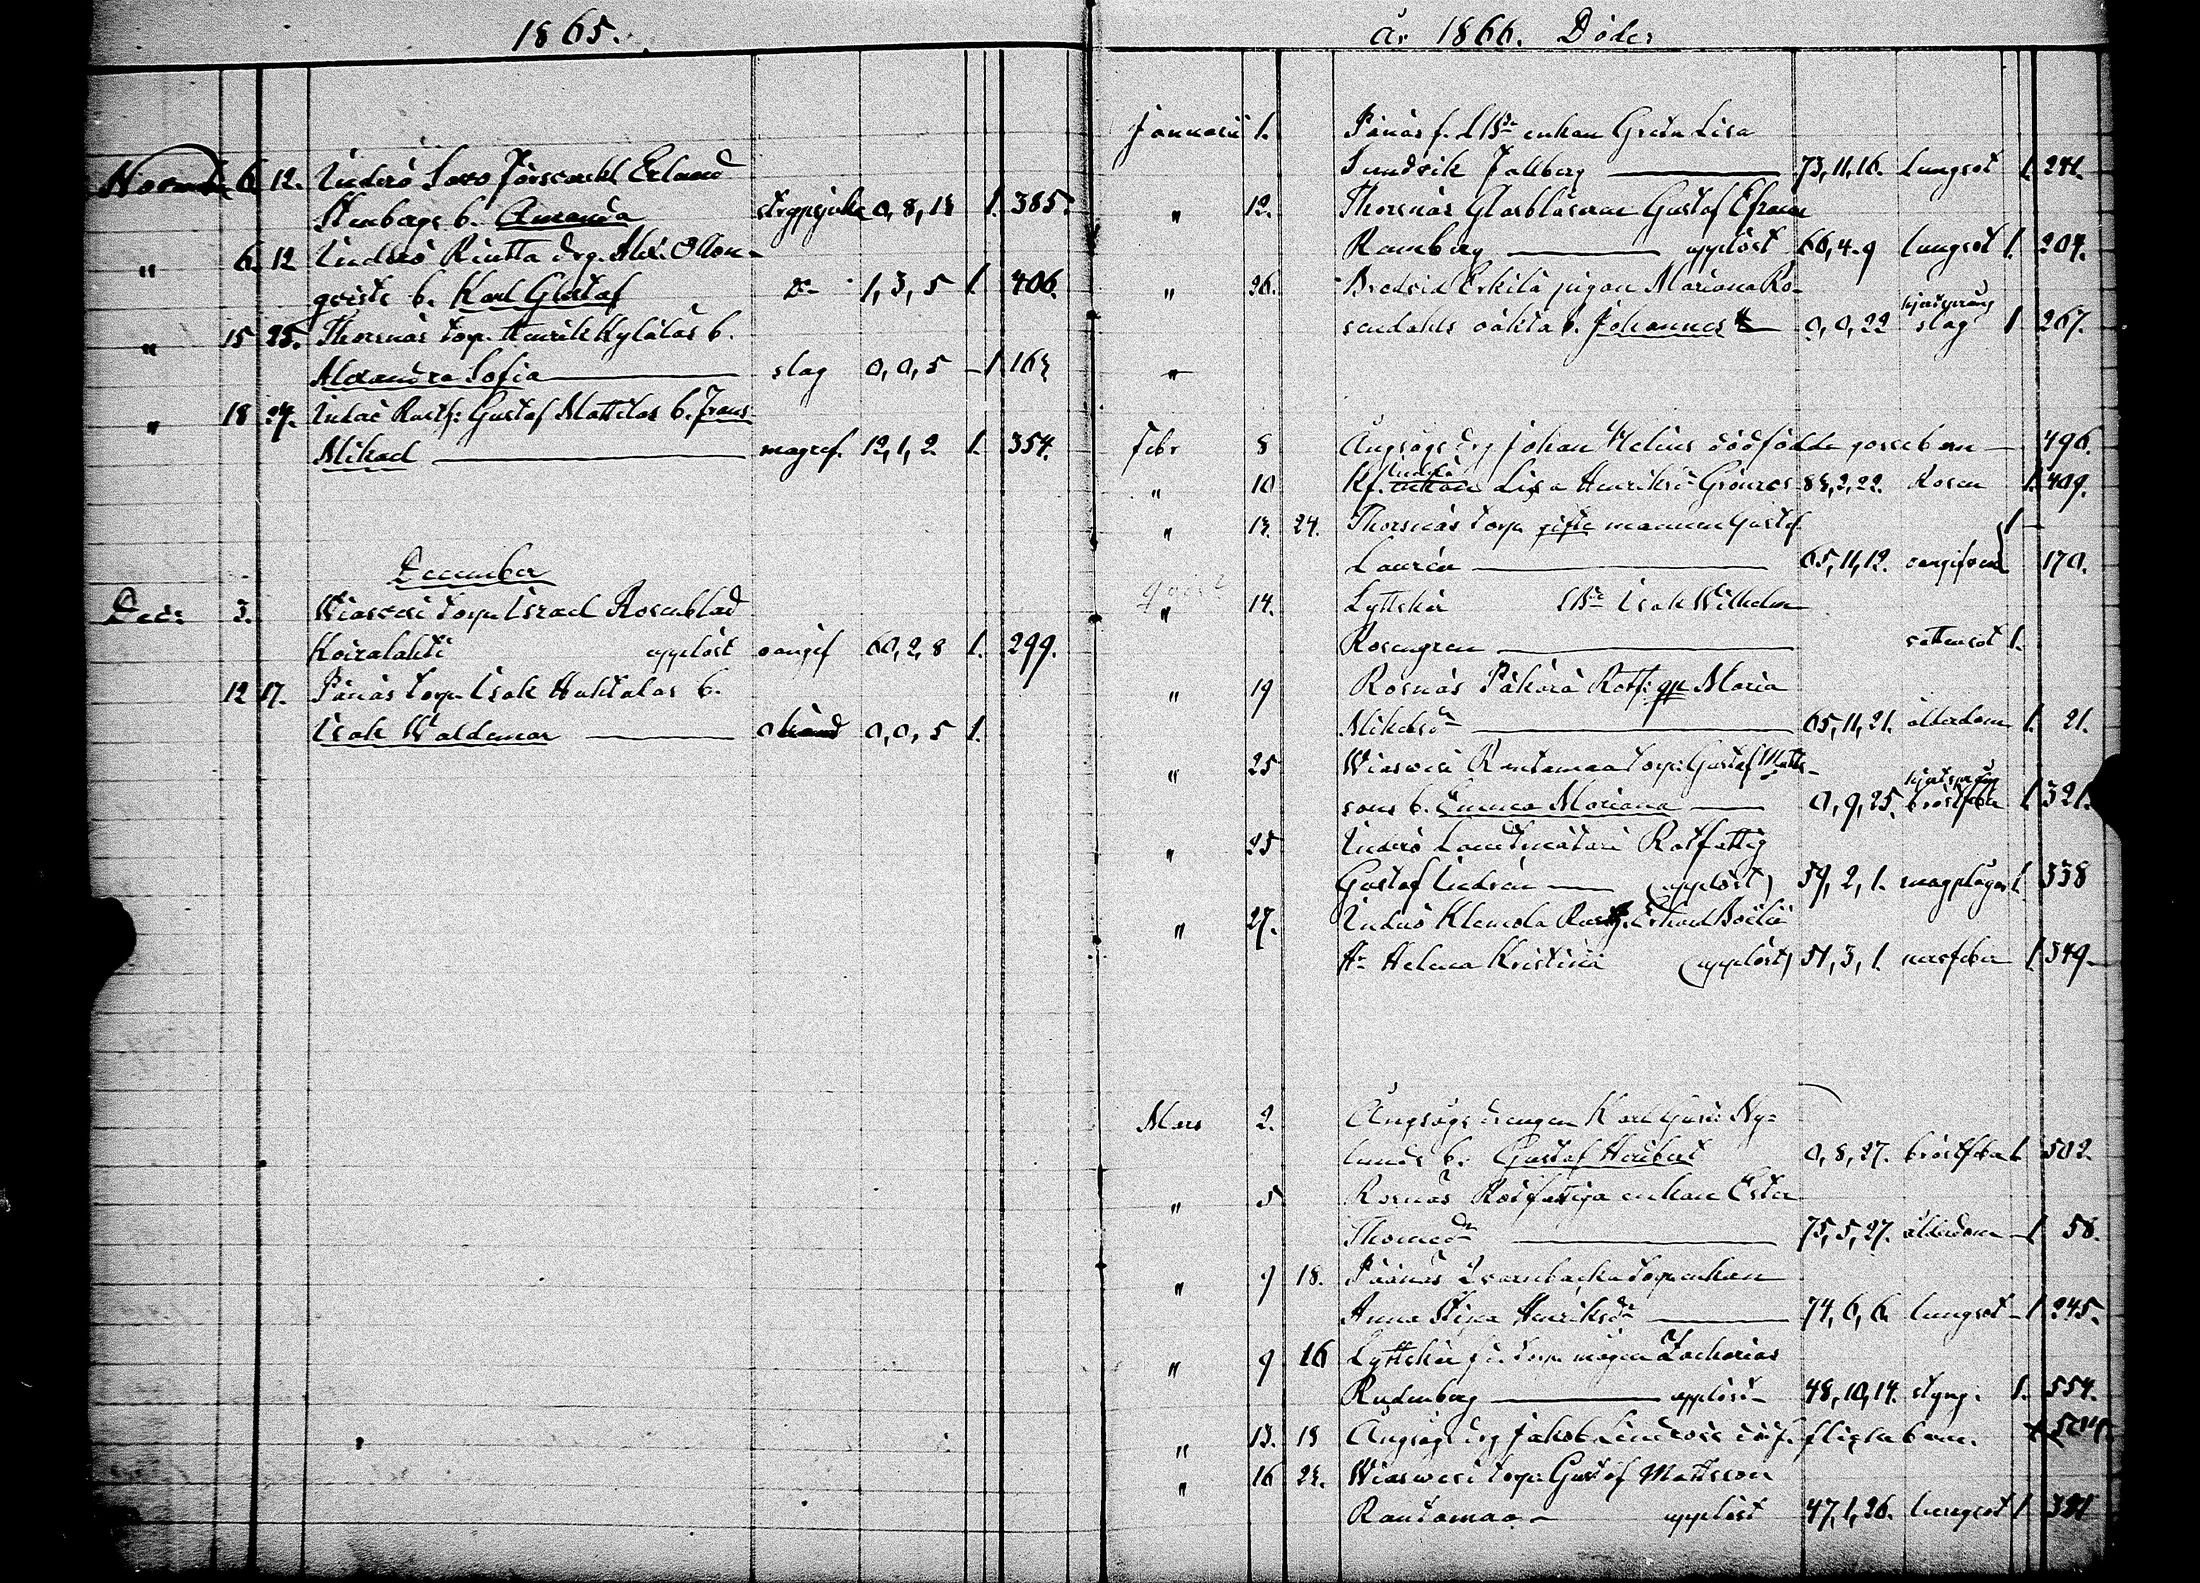 1865.
Novemb 6 12. Undirö Erland
Stenbergs b. Amanda strypsjuka 0, 8, 13 1. 385.
" 6. 12 Undirö drg. Alex.
qvists b. Karl Gustaf Do 1, 3, 5 1 406.
" 15 25. Thorsnäs torp. Henrik Kyläläs b.
Alexandra Sofia slag 0, 0, 5 1 163
" 18 27. Rusth: Gustaf Mattilas b. Frans
Mikael magref. 12, 1, 2 1. 354.
December
Decr 3. Wiasvesi torp. Israel Rosenblad
Koiralahti upplöst oangif 60, 2, 8 1. 299.
12 17. Pänäs torp. Isak Huhtalas b.
Isak Waldemar okänd 0, 0, 5 1.
år 1866. Döder
Januarii 1. Pänäs f. enkan Greta Lisa
Sundvik Fallberg 73, 11, 16. Lungsot 1. 241.
" 12. Thorsnäs Glasblåsaren Gustaf Efraim
Ramberg upplöst 66, 4, 9 lungsot 1. 204.
" 26. Bredvik Erkilä pigan Mariana Ro-
sendahls oäkta b. Johannes 0, 0, 22 hjertsprång slag 1 267.
"
Febr 8 Ängsögs drg Johan Helins dödfödda gossebarn 496.
" 10 Lisa Henriksdr Grönroos 83, 2, 22. Rosen 1. 409.
" 13. 24. Thorsnäs torp. gifte mannen Gustaf 1
Laurén 65, 11, 12. oangifven 170.
" 14. Lyttskär Isak Wilhelm
Rosengren vattensot 1.
" 19 Rosnäs Päkärä Rotf. Maria
Mikelsdr 65, 11, 21. ålderdom 1. 21.
" 25 Wiasvesi Rantamaa torp: Gustaf Matts-
sons b. Emma Mariana 0, 9, 25. hjertsprång bröstfeber 1 321.
" 25 Undirö Rotfattig
Gustaf Lindrén (upplöst) 59, 2, 1. magplågor 1. 338
" 27. Undirö Klemola Rusth. Erland Boëlii
Hu Helena Kristina (upplöst) 51, 3, 1. nervfeber 1. 349.
Mars 2. Ängsögs drengen Karl Gust: Ny-
lunds b. Gustaf Heribert 0, 8, 27. bröstfeber 1. 502.
" 5 Rosnäs Rotfattiga enkan Ester
Thomasdr 75, 5, 27. ålderdom 1 58.
" 9 18. Päänäs Qvarnbacka torp. enkan
Anna Stina Henriksdr 74, 6, 6. lungsot 1 245.
" 9 16 Lyttskär torp. mågen Zacharias
Rudenberg upplöst 48, 10, 14. styng. 1. 554.
" 13. 18 Ängsögs drg Jakob Lindroos dödf. flickebarn. 504.
" 16 23. Wiasvesi torp. Gustaf Mattsson
Rantamaa upplöst 47, 1, 26. lungsot 1. 321